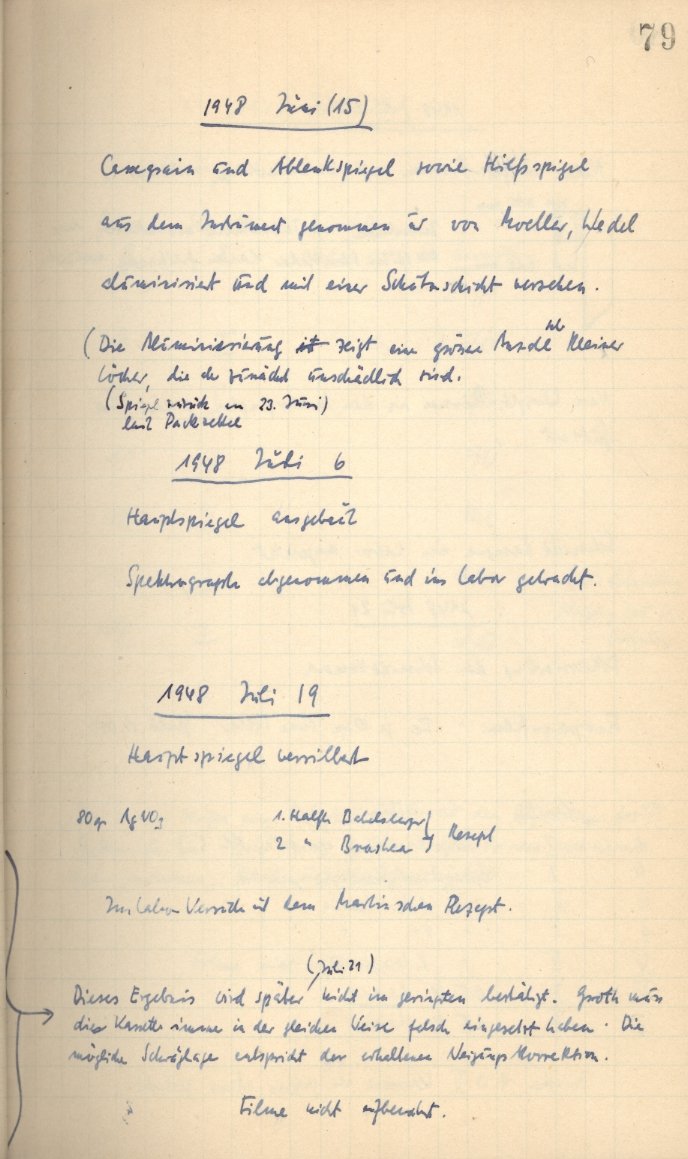 79
1948 Juni (15)
Cassegrain und Ablenkspiegel sowie Hilfsspiegel
aus dem Instrument genommen u. von Moeller, Wedel
aluminisiert und mit einer Schutzschicht versehen.
(Die Aluminisierung ist zeigt eine grosse Anzahl sehr kleiner
Löcher, die aber zunächst unschädlich sind.
(Spiegel zurück am 23. Juni)
laut Packzettel
1948 Juli 6
Hauptspiegel ausgebaut
Spektrograph abgenommen und ins Labor gebracht.
1948 Juli 19
Hauptspiegel versilbert
80 gr AgNO3 1. Hälfte Babelsberger
2 " Brashear } Rezept
Im Labor Versuche mit dem Martinschen Rezept.
(Juli 21)
Dieses Ergebnis wird später nicht im geringsten bestätigt. Groth muss
diese Kassette immer in der gleichen Weise falsch eingesetzt haben. Die
mögliche Schräglage entspricht der erhaltenen Neigungs Korrektion.
Filme nicht aufbewahrt.